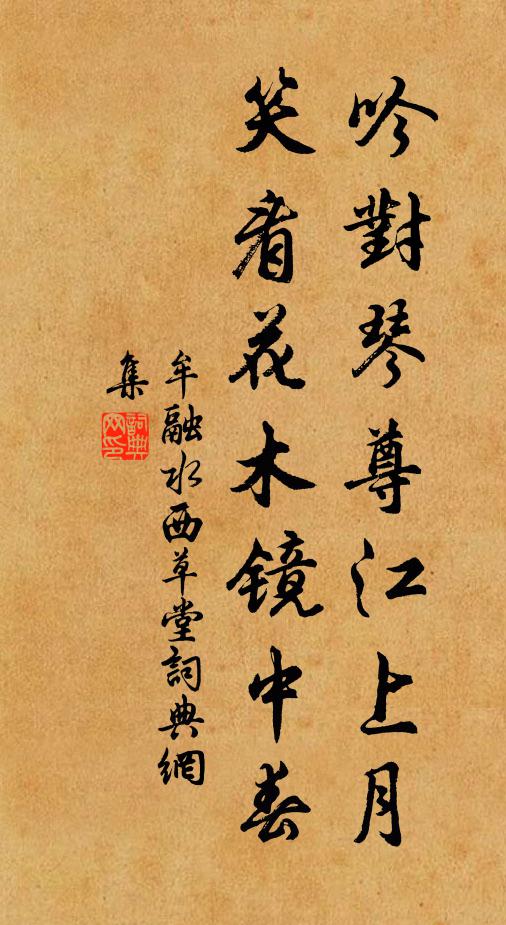 吟對琴尊江上月
笑看花木鏡中春
牟融水西草堂詞典網
集
詞典网印